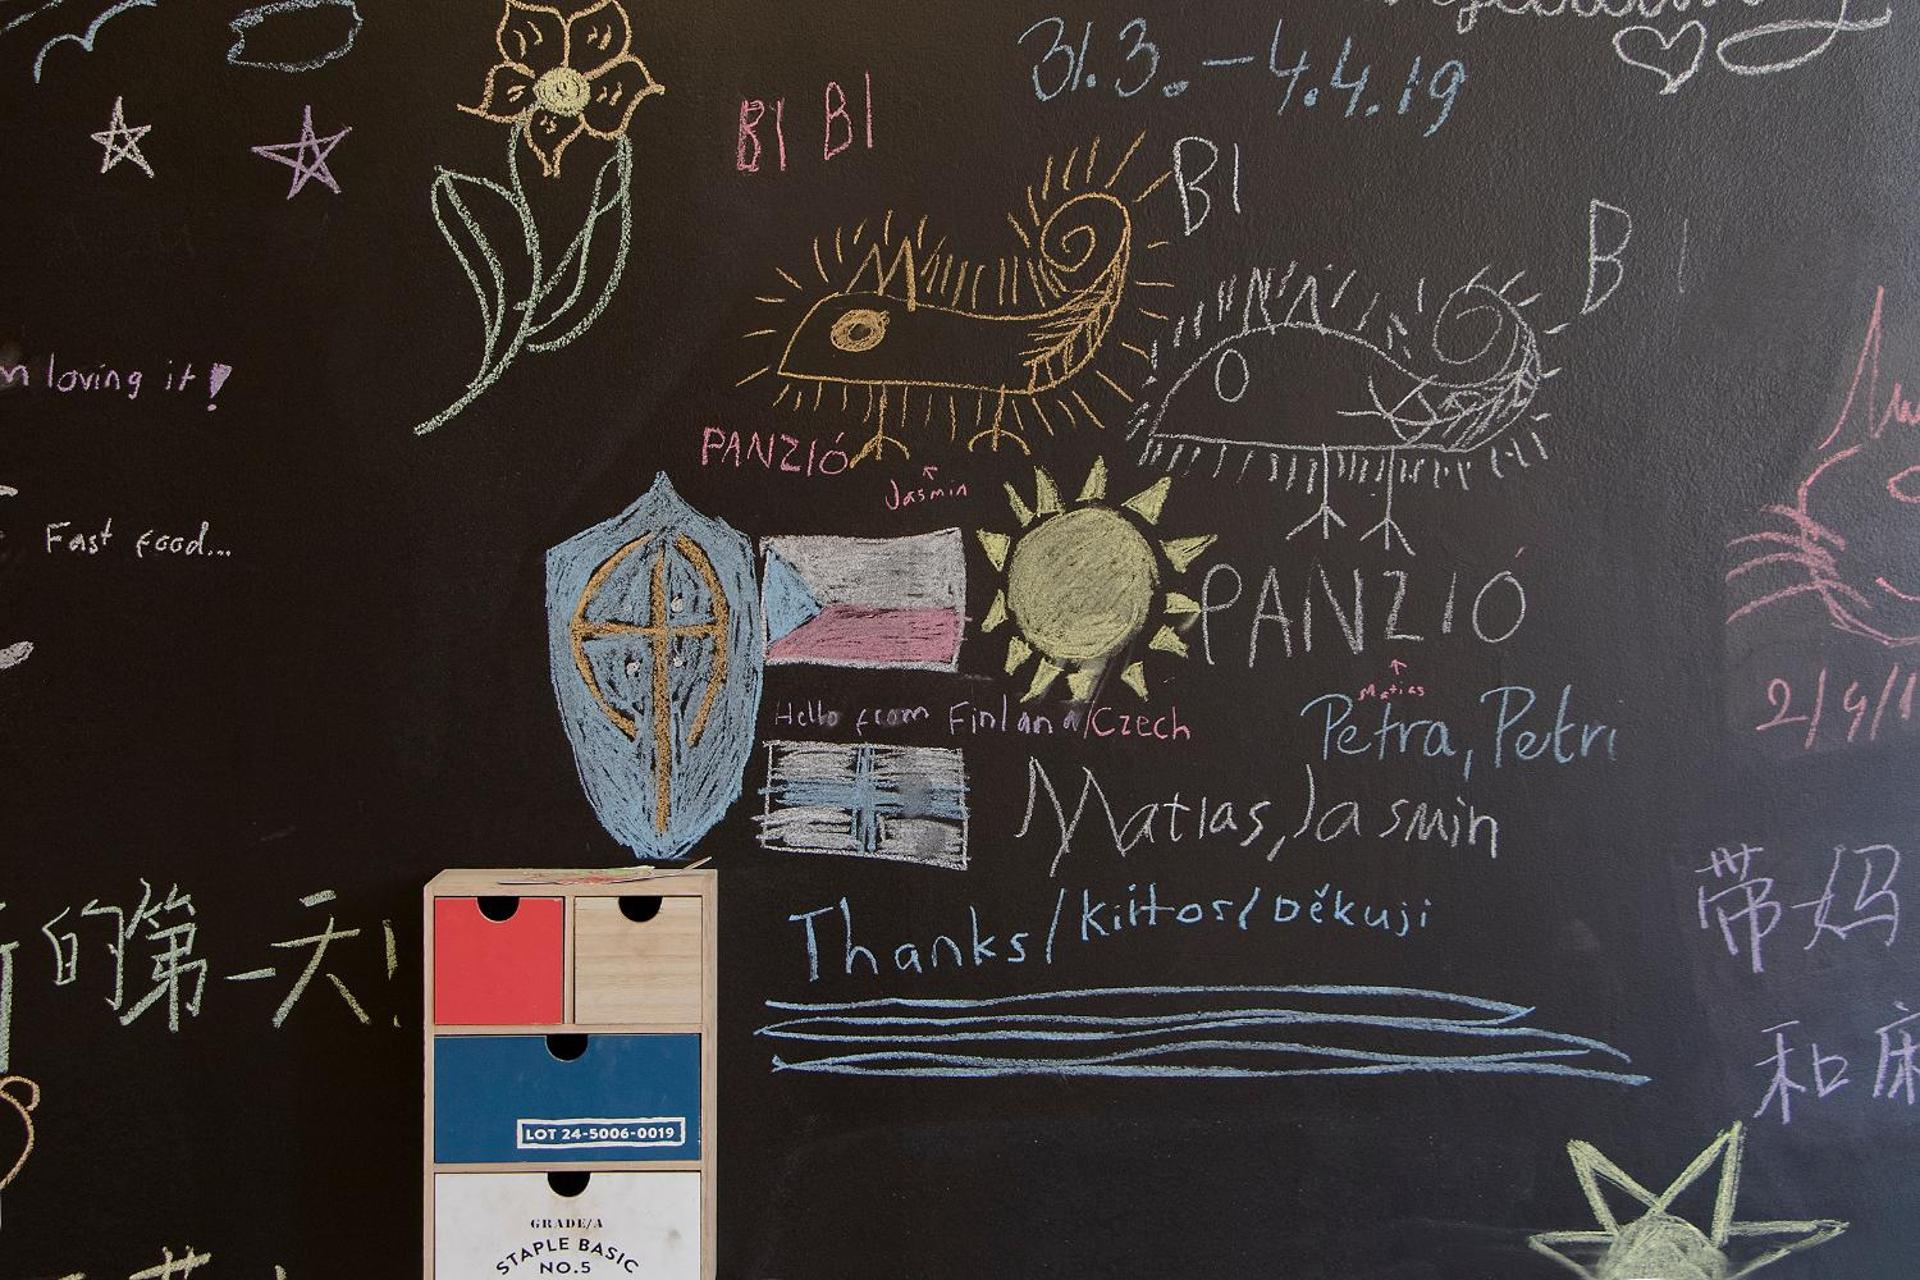 31.3.-4.4.19
BI BI
BI
B I
m loving it!
PANZIÓ
Jasmin
Fast food...
PANZIÓ
Matias
Hello from Finland/Czech
Petra, Petri
2/4/1
Matias, Jasmin
带妈
的第一天!
Thanks/kiitos/Děkuji
和
LOT 24-5006-0019
GRADE/A
STAPLE BASIC
NO.5